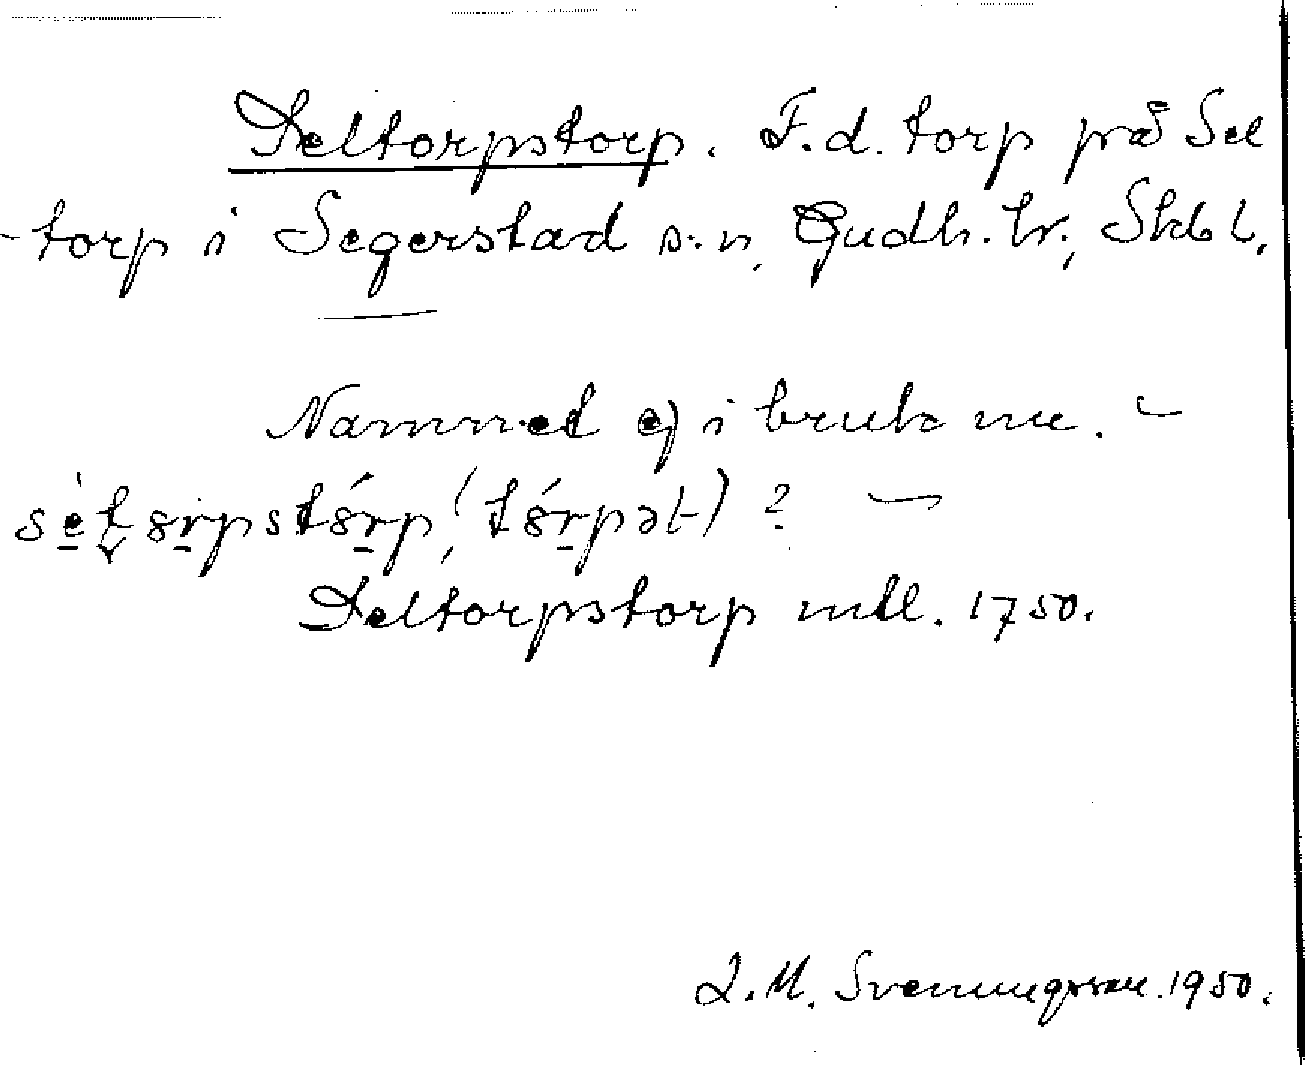 Seltorpstorp. F. d. torp på Sel
-torp i Segerstad s:n, Gudh. hr., Skbl.
Namnet ej i bruk nu. –
Seltorpstorp mtl. 1750.
J. M. Svenningsson. 1950.